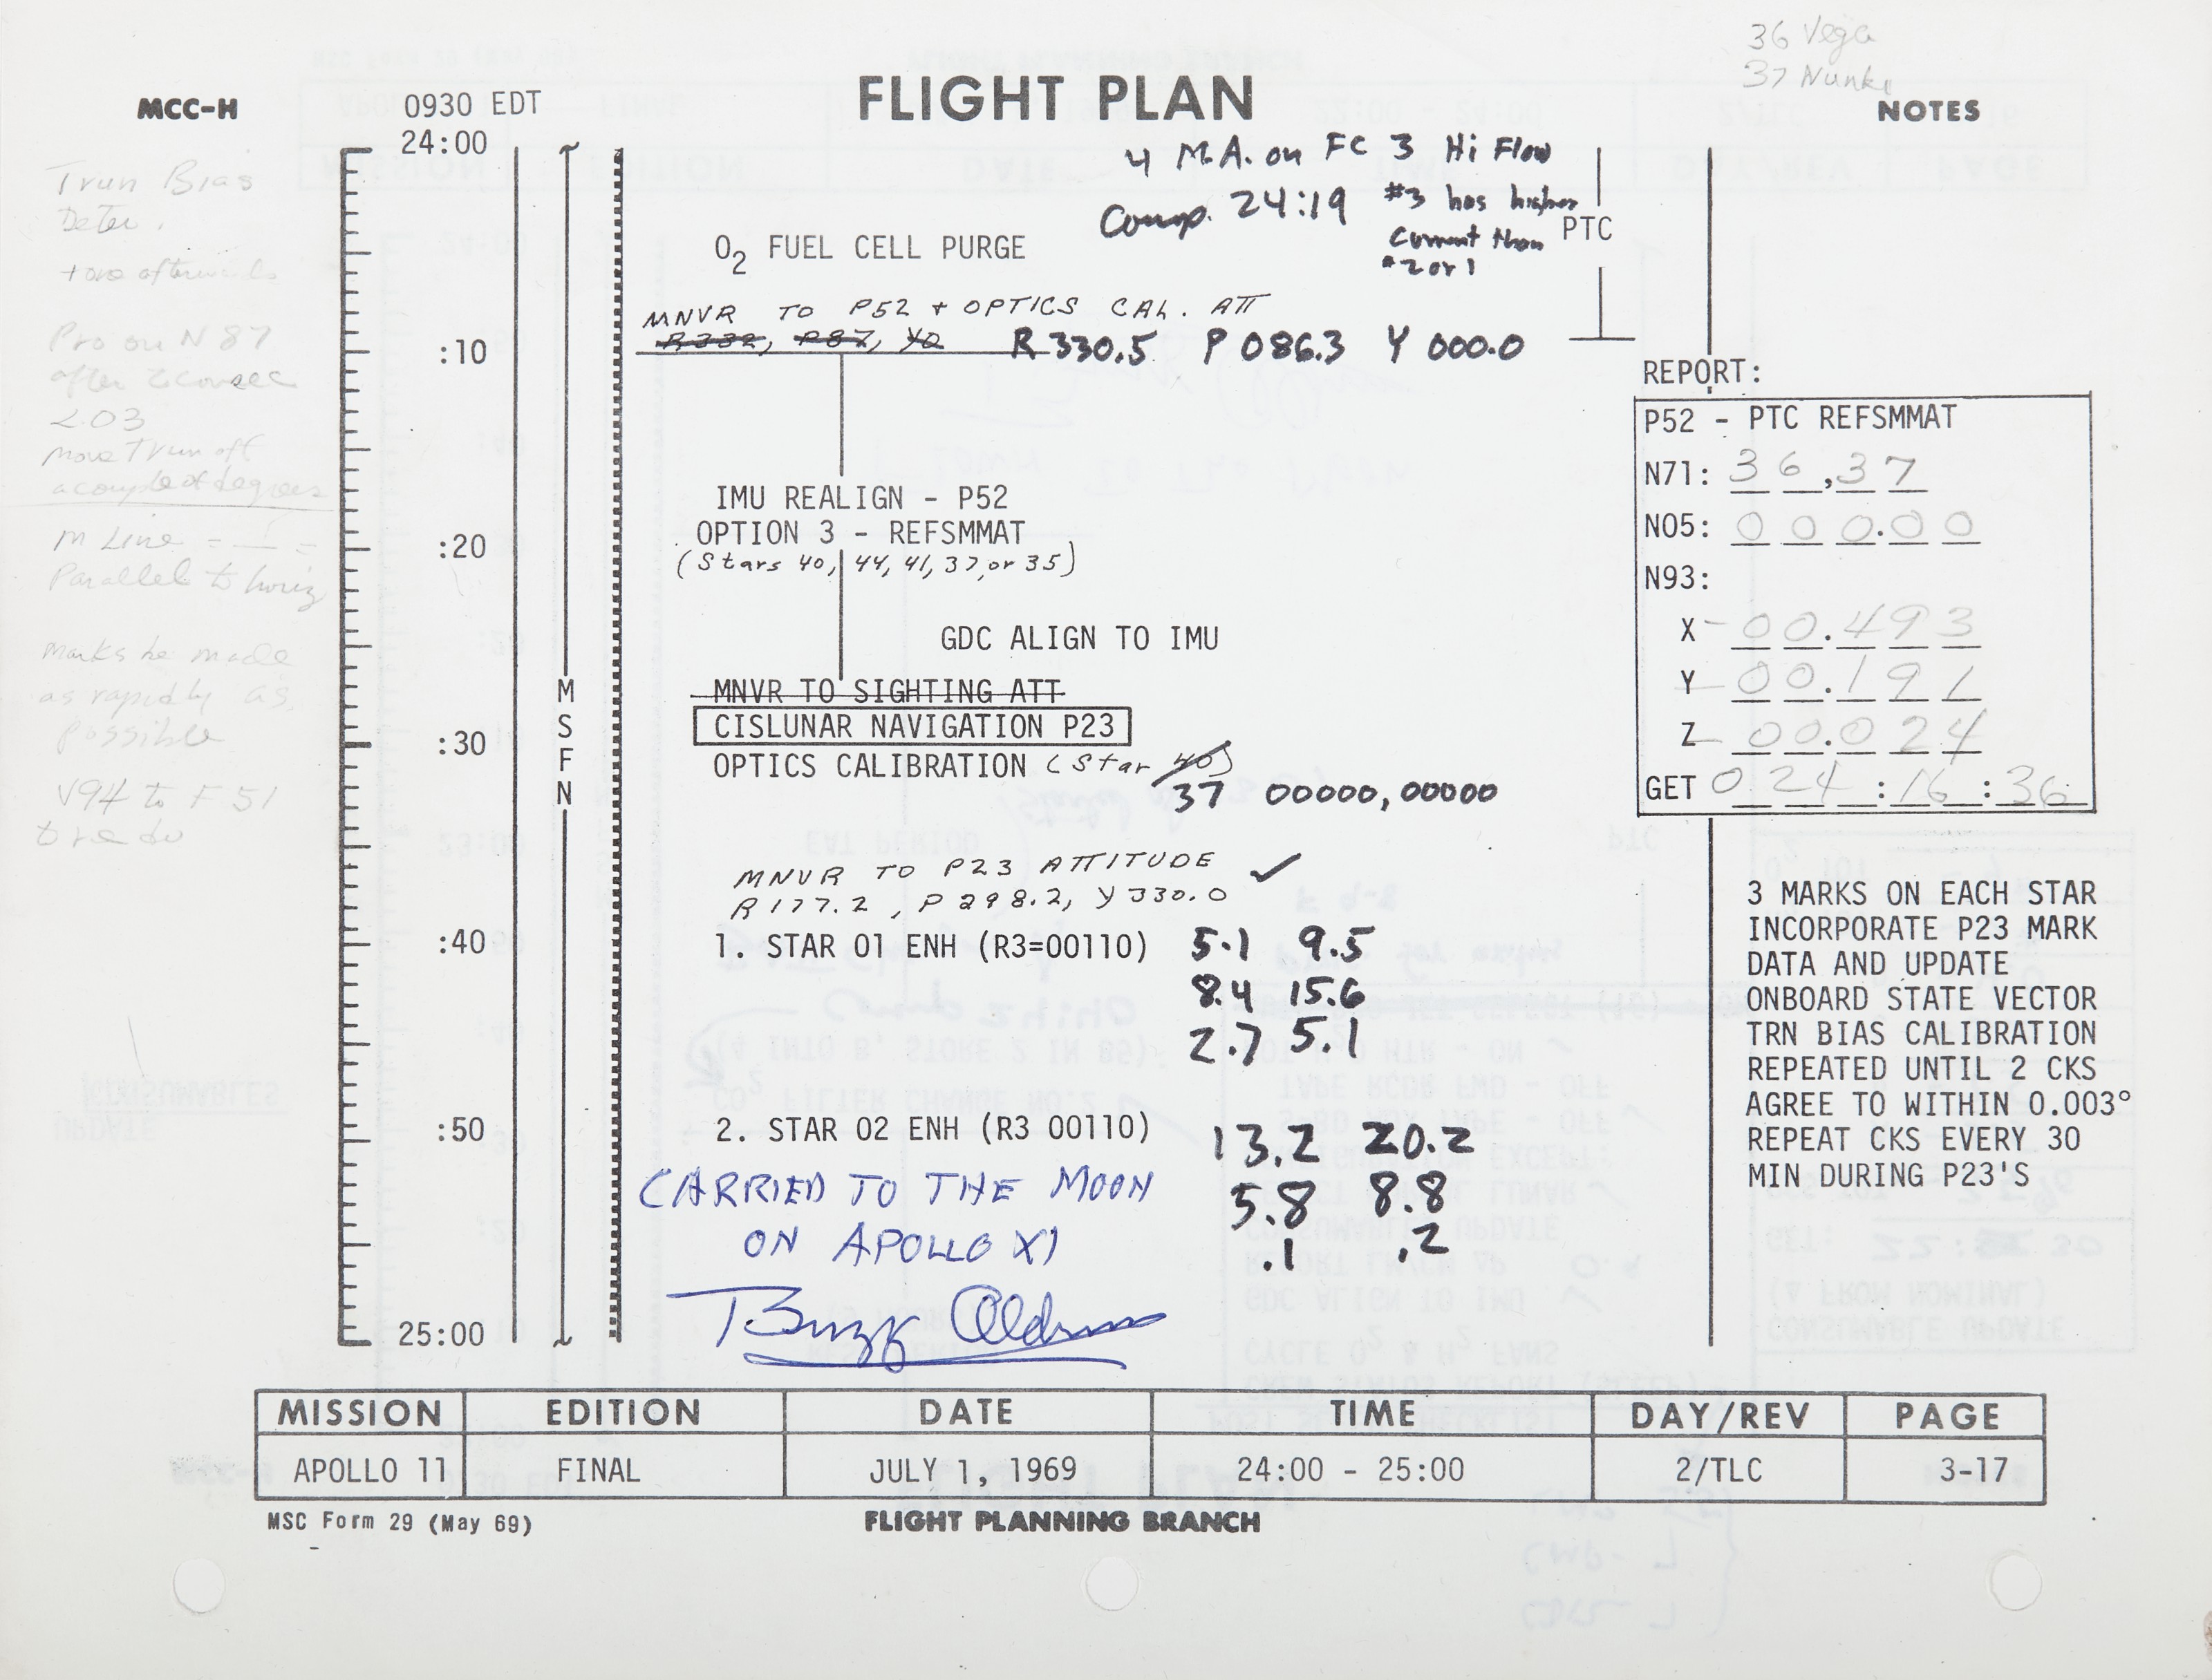 36 Vega
37 Nunki
MCC-H
0930 EDT
FLIGHT PLAN
NOTES
24:00
4 M.A. on FC 3 Hi Flow
Comp. 24:19
#3 has higher
current than
#2 or 1
PTC
O2 FUEL CELL PURGE
MNVR TO P52 + OPTICS CAL. ATT
R332, P87, Y0
R 330.5 P 086.3 Y 000.0
:10
REPORT:
P52 - PTC REFSMMAT
N71: 36,37
N05: 000.00
N93:
X -00.493
Y -00.191
Z -00.024
GET 024:16:36
IMU REALIGN - P52
OPTION 3 - REFSMMAT
:20
(Stars 40, 44, 41, 37, or 35)
GDC ALIGN TO IMU
MNVR TO SIGHTING ATT
M
S
F
N
CISLUNAR NAVIGATION P23
:30
OPTICS CALIBRATION (Star 40)
37 00000,00000
MNVR TO P23 ATTITUDE ✓
R 177.2, P 298.2, Y 330.0
:40
1. STAR 01 ENH (R3=00110)
5.1 9.5
8.4 15.6
2.7 5.1
:50
2. STAR 02 ENH (R3 00110)
13.2 20.2
5.8 8.8
.1 .2
CARRIED TO THE MOON
ON APOLLO XI
Buzz Aldrin
25:00
3 MARKS ON EACH STAR
INCORPORATE P23 MARK
DATA AND UPDATE
ONBOARD STATE VECTOR
TRN BIAS CALIBRATION
REPEATED UNTIL 2 CKS
AGREE TO WITHIN 0.003°
REPEAT CKS EVERY 30
MIN DURING P23'S
Trun Bias
Deter.
Pro on N 87
after 2 consec
<.03
move Trun off
a couple of degrees
M Line
Parallel to horiz
Marks be made
as rapidly as
possible
V94 to F 51
to redo
MISSION EDITION DATE TIME DAY/REV PAGE
APOLLO 11 FINAL JULY 1, 1969 24:00 - 25:00 2/TLC 3-17
MSC Form 29 (May 69)
FLIGHT PLANNING BRANCH